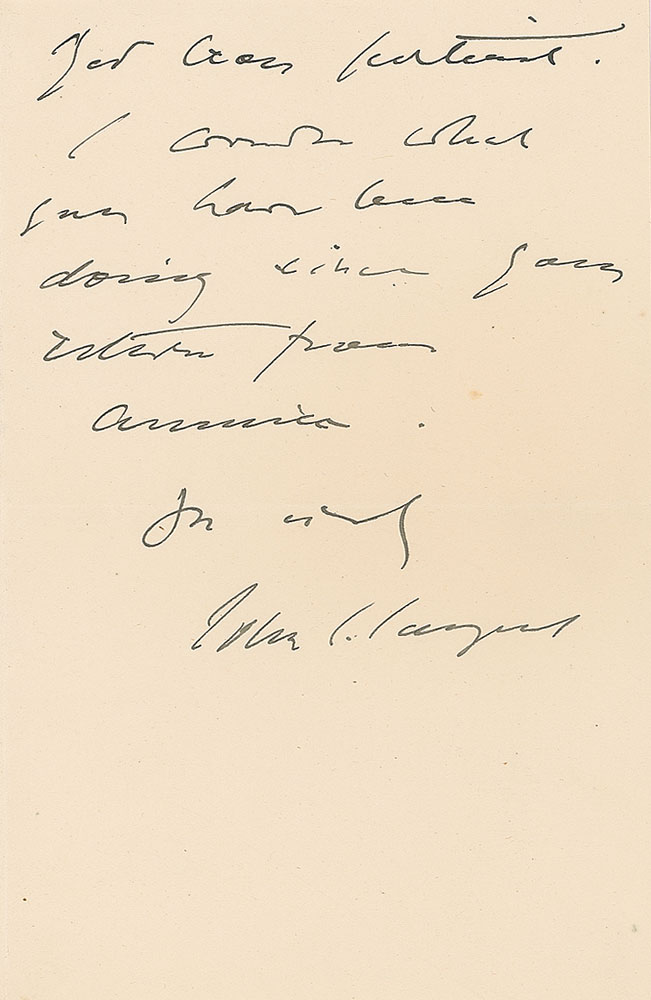 Red Cross portrait.
I wonder what
you have been
doing since your
return from
America.
John S. Sargent